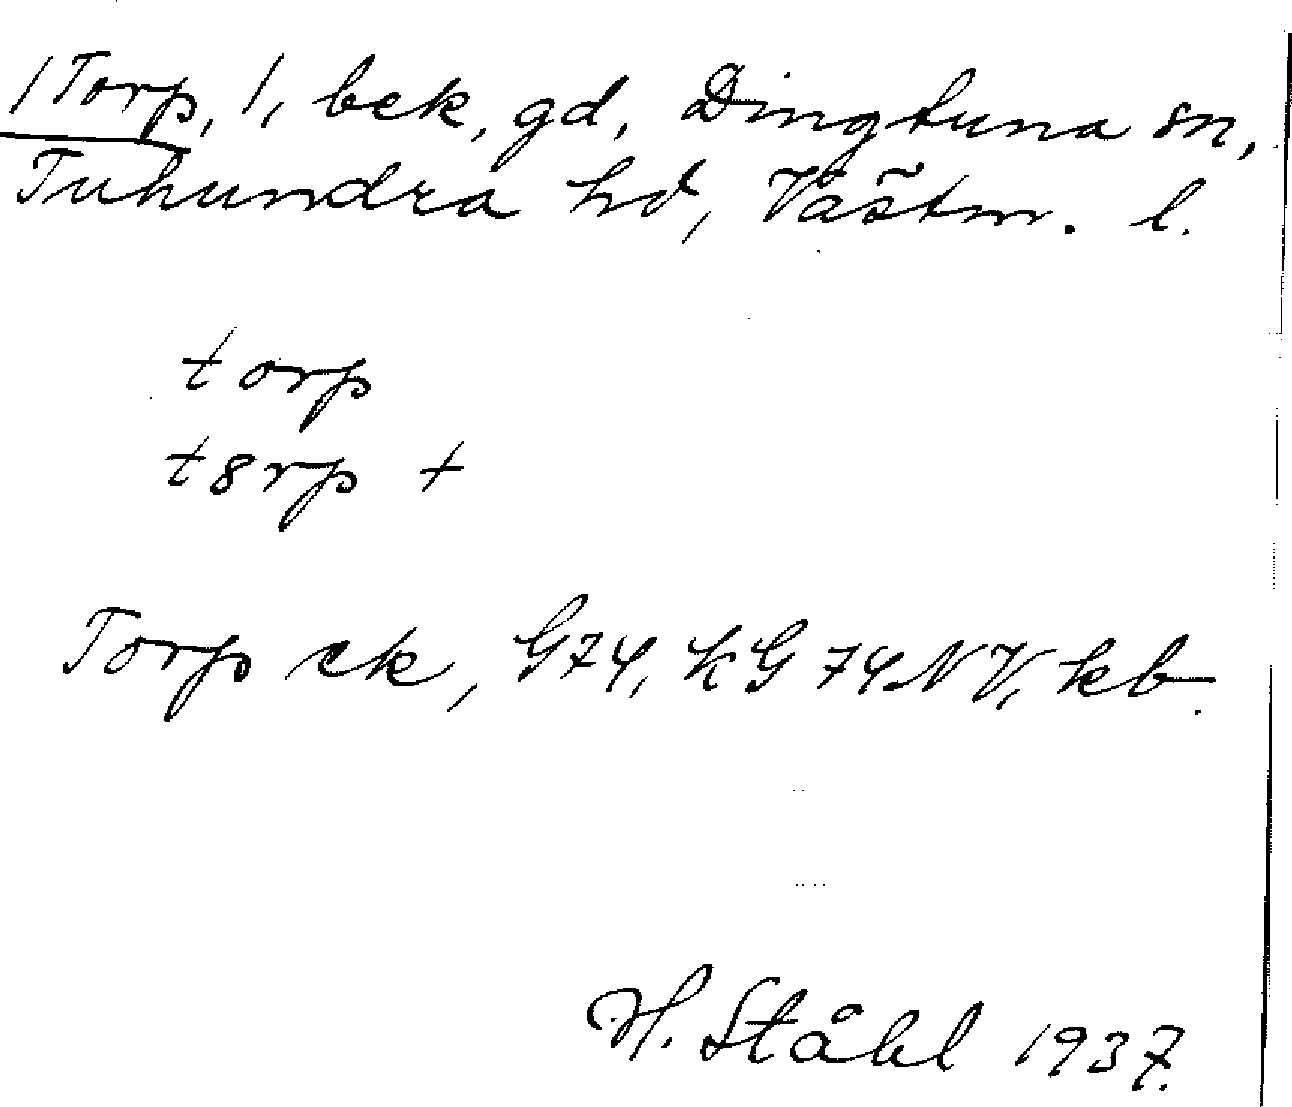 /Torp, /, bek, gd, Dingtuna sn,
Tuhundra hd, Västm. l.
torp
t8rp +
Torp ek, G74, KG 74 NV, kb.
H. Ståhl 1937.